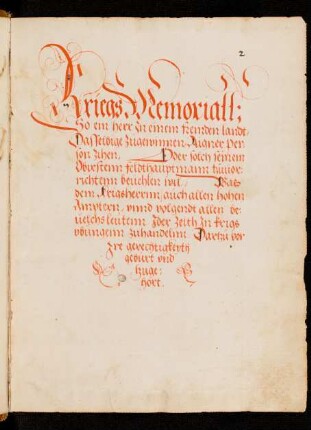 2
Kriegs Memoriall:
So ein herr zu einem frembden landt
Dasselbige zugewinnen, In aigner Per
son zihen. Oder solch seinem
Obersten feldthauptmann zuuor-
richtenn beuehlen wil.
dem Krigsherrnn, auch allen hohen
Amptern, vnnd volgendt allen be
uelchsleutenn Jder Zeith In Krigs
vbungenn zuhandeln. Dartzu vor
Jre gerechtigkeith
geburt vnd
zuge-
hort.